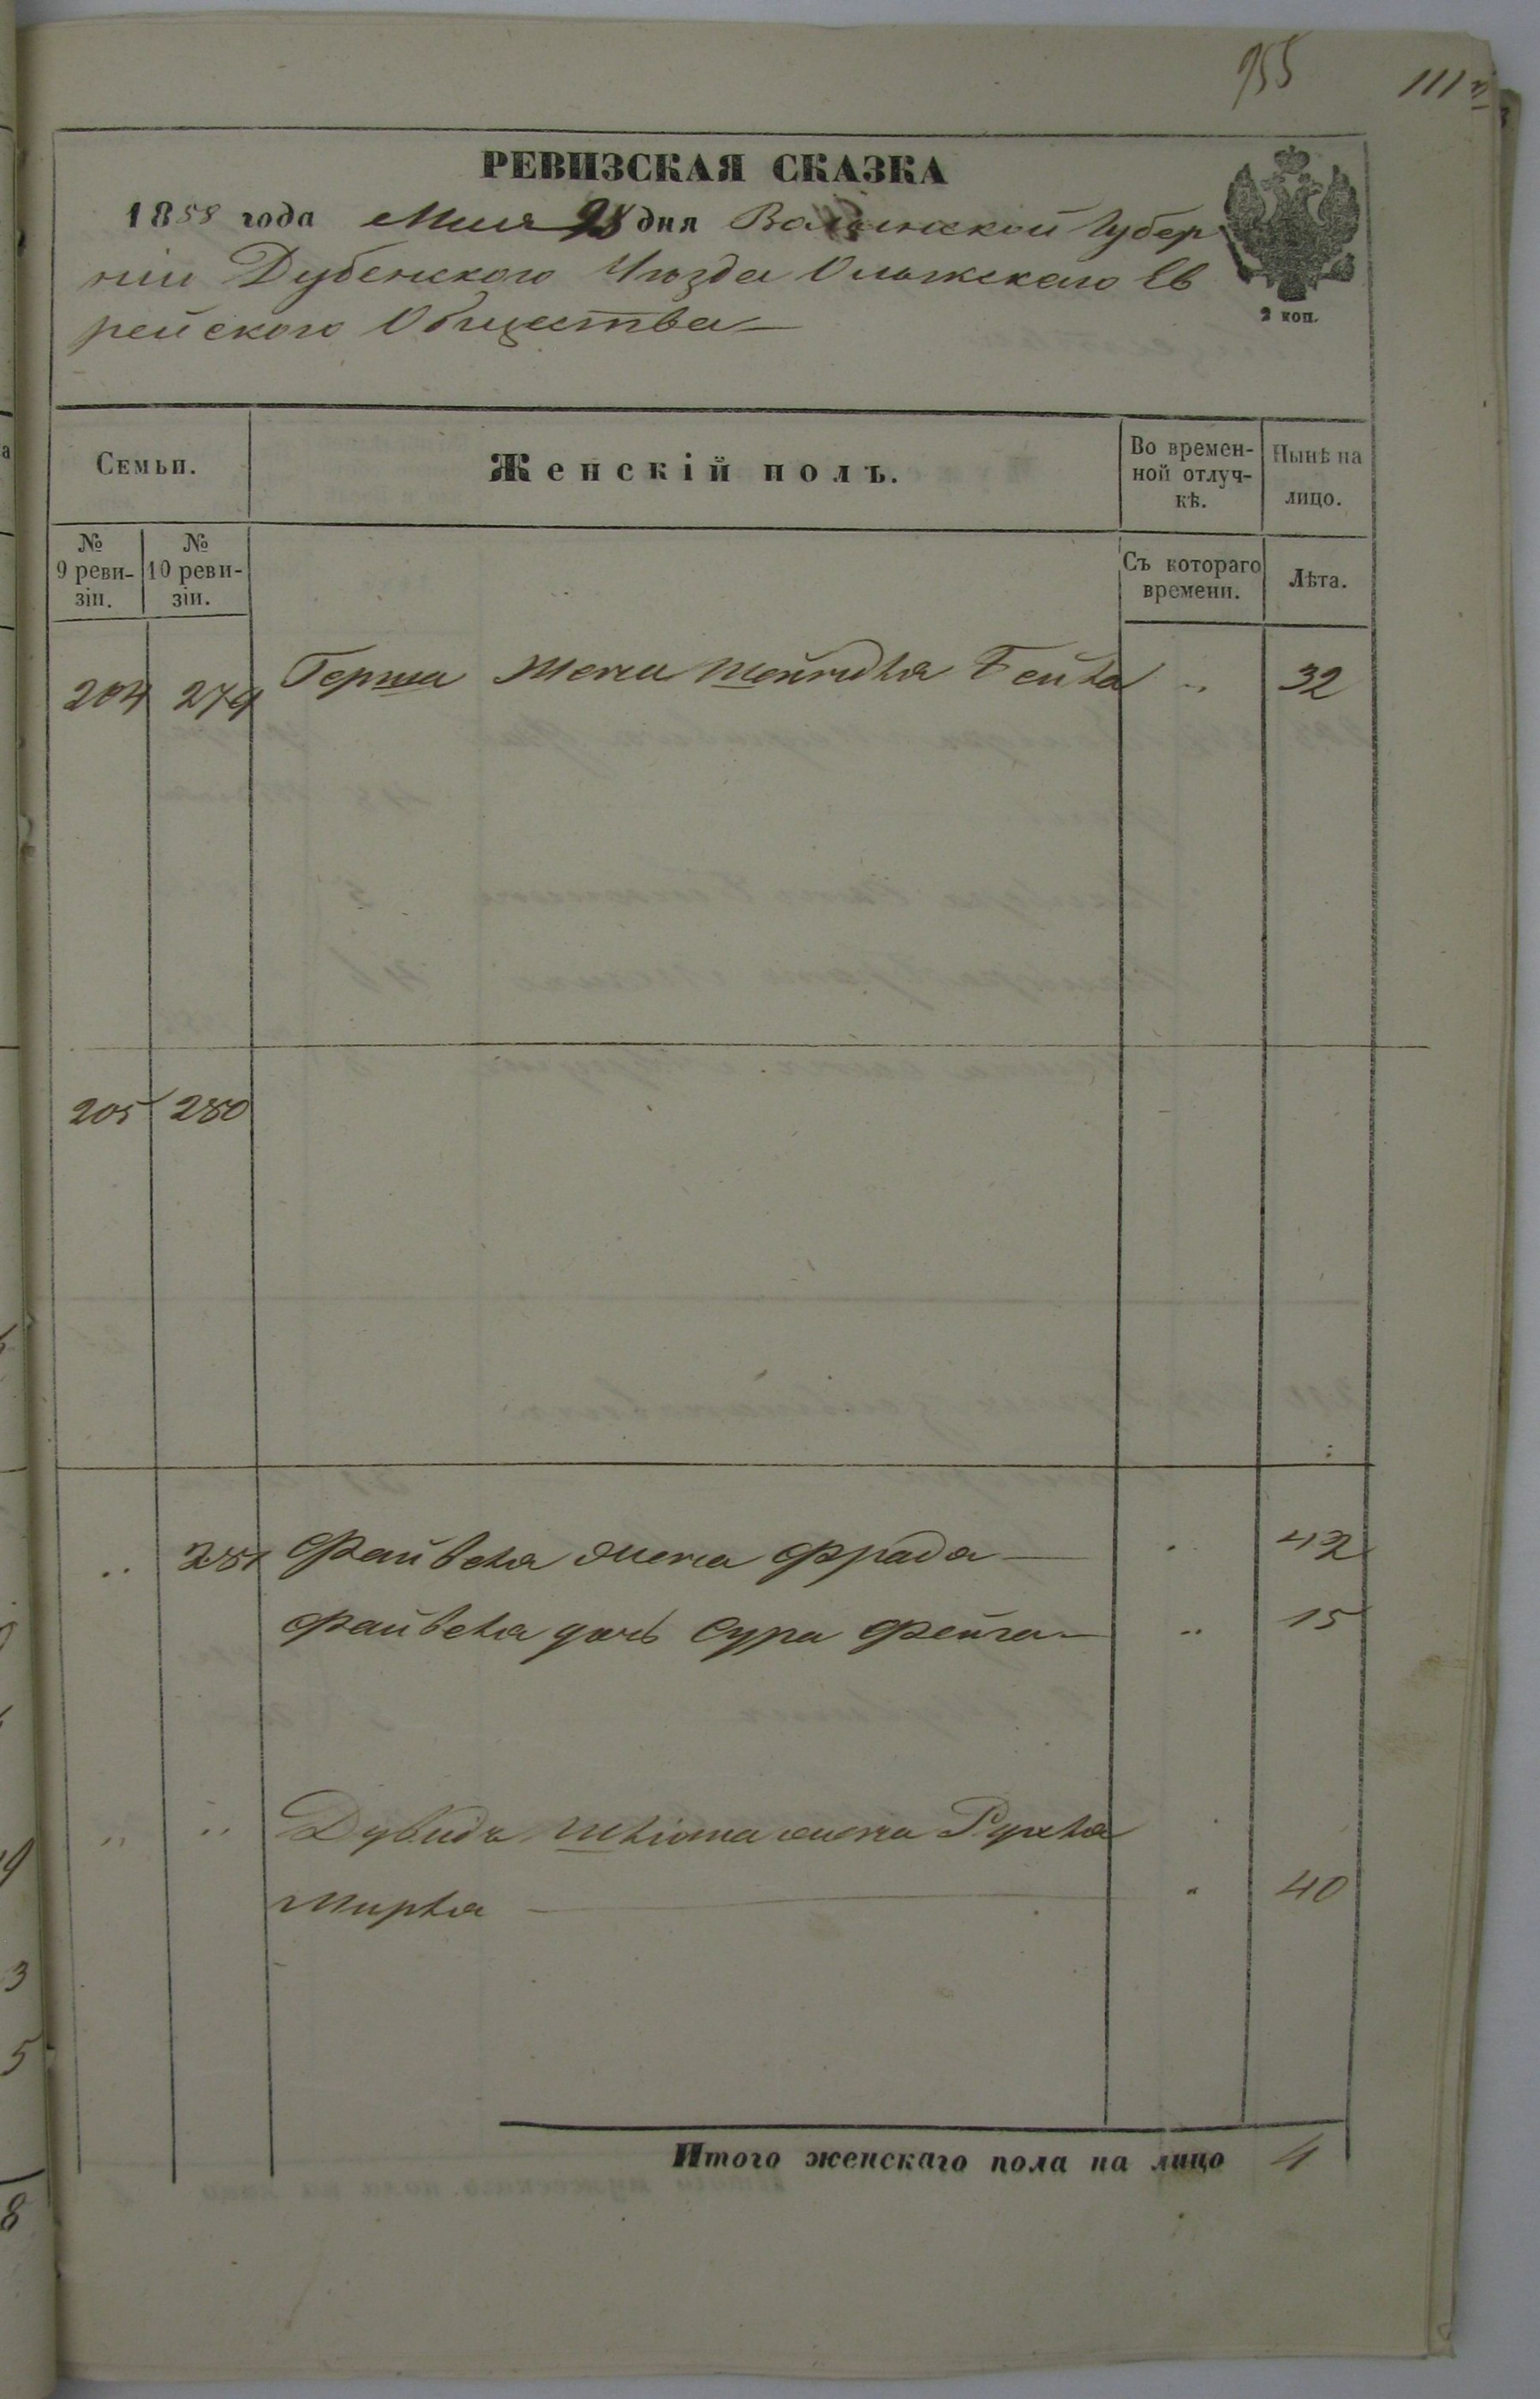 955
111
РЕВИЗСКАЯ СКАЗКА
1858 года Мая 28 дня Волынской Губер
ніи Дубенского Уѣзда Олыжскаго Ев
рейского Общества
2 коп.
Семьи.
Женскій полъ.
Во времен-
ной отлуч-
кѣ.
Нынѣ на
лицо.
№
9 реви-
зіи.
№
10 реви-
зіи.
Съ котораго
времени.
Лѣта.
204 279 Герша жена Шейндля Бейла „ 32
205 280
„ 281 Файвеля жена Фрада „ 42
Файвеля дочь Сура Фейга „ 15
„ „ Дувидъ Шліома жена Рухля
Мирля „ 40
Итого женскаго пола на лицо 4